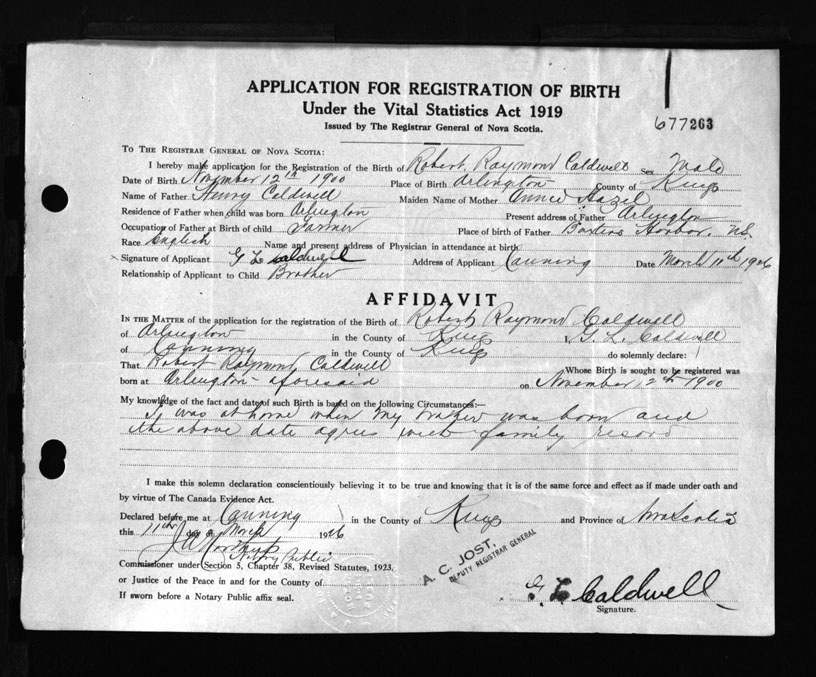 APPLICATION FOR REGISTRATION OF BIRTH
Under the Vital Statistics Act 1919
Issued by The Registrar General of Nova Scotia.
677263
TO THE REGISTRAR GENERAL OF NOVA SCOTIA:
I hereby make application for the Registration of the Birth of Robert Raymond Caldwell Sex Male
Date of Birth November 12th 1900 Place of Birth Arlington County of Kings
Name of Father Henry Caldwell Maiden Name of Mother Annie Hazel
Residence of Father when child was born Arlington Present address of Father Arlington
Occupation of Father at Birth of child Farmer Place of birth of Father Baxters Harbor. N.S.
Race English Name and present address of Physician in attendance at birth
x Signature of Applicant G L Caldwell Address of Applicant Canning Date March 11th 1926
Relationship of Applicant to Child Brother
AFFIDAVIT
IN THE MATTER of the application for the registration of the Birth of Robert Raymond Caldwell
of Arlington in the County of Kings G. L. Caldwell
of Canning in the County of Kings do solemnly declare:
That Robert Raymond Caldwell Whose Birth is sought to be registered was
born at Arlington aforesaid on November 12th 1900
My knowledge of the fact and date of such Birth is based on the following Circumstances:—
I was at home when my brother was born and
the above date agrees with family record
I make this solemn declaration conscientiously believing it to be true and knowing that it is of the same force and effect as if made under oath and
by virtue of The Canada Evidence Act.
Declared before me at Canning in the County of Kings and Province of Nova Scotia
this 11th day of March 1926
Notary Public
Commissioner under Section 5, Chapter 38, Revised Statutes, 1923.
or Justice of the Peace in and for the County of
If sworn before a Notary Public affix seal.
A. C. JOST,
DEPUTY REGISTRAR GENERAL
x G. L Caldwell
Signature.